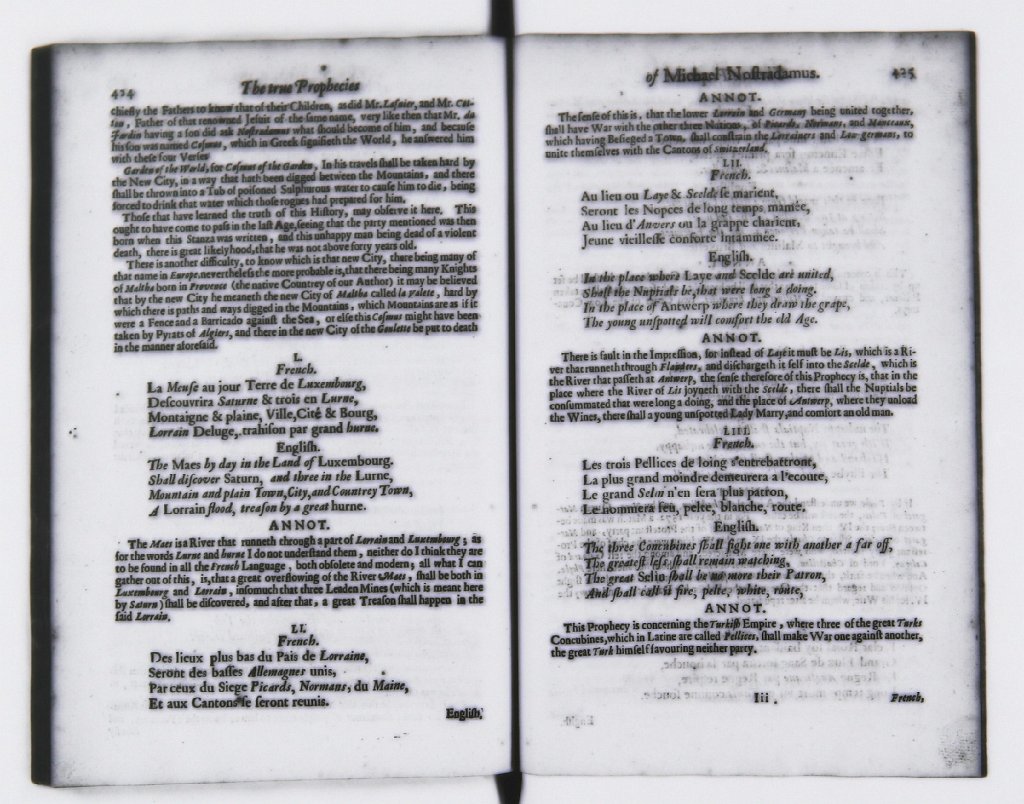 424 The true Prophecies
chiefly the Fathers to know that of their Children, as did Mr. Lafnier, and Mr. Cot-
ton, Father of that renowned Jesuit of the same name, very like then that Mr. du
Jardin having a son did ask Nostradamus what should become of him, and because
his son was named Cosmus, which in Greek signifieth the World, he answered him
with these four Verses
Garden of the World, for Cosmus of the Garden, In his travels shall be taken hard by
the New City, in a way that hath been digged between the Mountains, and there
shall be thrown into a Tub of poisoned Sulphurous water to cause him to die, being
forced to drink that water which those rogues had prepared for him.
Those that have learned the truth of this History, may observe it here. This
ought to have come to pass in the last Age, seeing that the party mentioned was then
born when this Stanza was written, and this unhappy man being dead of a violent
death, there is great likelyhood, that he was not above forty years old.
There is another difficulty, to know which is that new City, there being many of
that name in Europe, nevertheless the more probable is, that there being many Knights
of Maltha born in Provence (the native Countrey of our Author) it may be believed
that by the new City he meaneth the new City of Maltha called la Valete, hard by
which there is paths and ways digged in the Mountains, which Mountains are as if it
were a Fence and a Barricado against the Sea, or else this Cosmus might have been
taken by Pyrats of Algiers, and there in the new City of the Goulette be put to death
in the manner aforesaid.
L.
French.
La Meuse au jour Terre de Luxembourg,
Descouvrira Saturne & trois en Lurne,
Montaigne & plaine, Ville, Cité & Bourg,
Lorrain Deluge, trahison par grand hurne.
English.
The Maes by day in the Land of Luxembourg.
Shall discover Saturn, and three in the Lurne,
Mountain and plain Town, City, and Countrey Town,
A Lorrain flood, treason by a great hurne.
ANNOT.
The Maes is a River that runneth through a part of Lorrain and Luxembourg; as
for the words Lurne and hurne I do not understand them, neither do I think they are
to be found in all the French Language, both obsolete and modern; all what I can
gather out of this, is, that a great overflowing of the River Maes, shall be both in
Luxembourg and Lorrain, insomuch that three Leaden Mines (which is meant here
by Saturn) shall be discovered, and after that, a great Treason shall happen in the
said Lorrain.
LI.
French.
Des lieux plus bas du Pais de Lorraine,
Seront des basses Allemagnes unis,
Par ceux du Siege Picards, Normans, du Maine,
Et aux Cantons se seront reunis.
English.
of Michael Nostradamus. 425
ANNOT.
The sense of this is, that the lower Lorrain and Germany being united together,
shall have War with the other three Nations, of Picards, Normans, and Manceaux,
which having Besieged a Town, shall constrain the Lorrainers and Low-germans, to
unite themselves with the Cantons of Switzerland.
LII.
French.
Au lieu ou Laye & Scelde se marient,
Seront les Nopces de long temps maniée,
Au lieu d'Anvers ou la grappe charient,
Jeune vieillesse conforte intaminée.
English.
In the place where Laye and Scelde are united,
Shall the Nuptials be, that were long a doing.
In the place of Antwerp where they draw the grape,
The young unspotted will comfort the old Age.
ANNOT.
There is fault in the Impression, for instead of Laye it must be Lis, which is a Ri-
ver that runneth through Flanders, and dischargeth it self into the Scelde, which is
the River that passeth at Antwerp, the sense therefore of this Prophecy is, that in the
place where the River of Lis joyneth with the Scelde, there shall the Nuptials be
consummated that were long a doing, and the place of Antwerp, where they unload
the Wines, there shall a young unspotted Lady Marry, and comfort an old man.
LIII.
French.
Les trois Pellices de loing s'entrebattront,
La plus grand moindre demeurera a l'ecoute,
Le grand Selin n'en sera plus patron,
Le nommera feu, pelte, blanche, route.
English.
The three Concubines shall fight one with another a far off,
The greatest less shall remain watching,
The great Selin shall be no more their Patron,
And shall call it fire, pelte, white, route,
ANNOT.
This Prophecy is concerning the Turkish Empire, where three of the great Turks
Concubines, which in Latine are called Pellices, shall make War one against another,
the great Turk himself favouring neither party.
Iii. French,